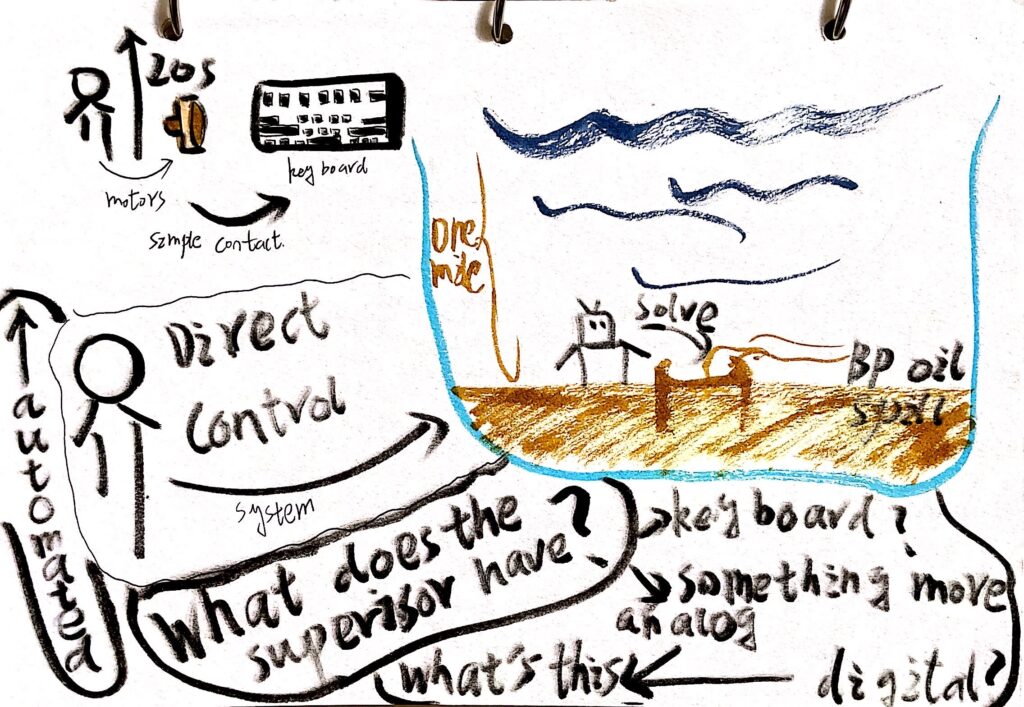 20s
motors
simple contact.
key board
one
mile
solve
BP oil
spill
Direct
control
system
automated
What does the
superisor have?
key board?
something more
analog
digital?
what's this